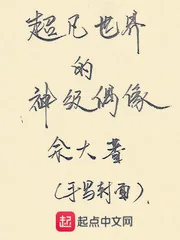 超凡世界
的
神级偶像
余大書
(手写封面)
起 起点中文网